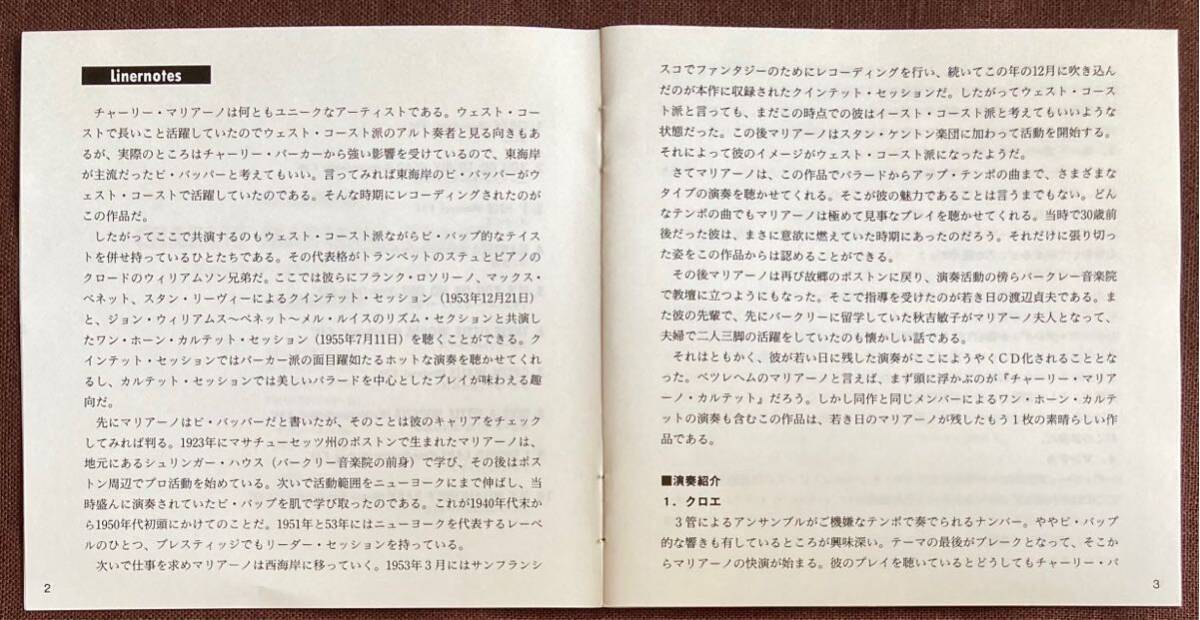 Linernotes
チャーリー・マリアーノは何ともユニークなアーティストである。ウェスト・コー
ストで長いこと活躍していたのでウェスト・コースト派のアルト奏者と見る向きもあ
るが、実際のところはチャーリー・パーカーから強い影響を受けているので、東海岸
が主流だったビ・バッパーと考えてもいい。言ってみれば東海岸のビ・バッパーがウ
ェスト・コーストで活躍していたのである。そんな時期にレコーディングされたのが
この作品だ。
したがってここで共演するのもウェスト・コースト派ながらビ・バップ的なテイス
トを併せ持っているひとたちである。その代表格がトランペットのステュとピアノの
クロードのウィリアムソン兄弟だ。ここでは彼らにフランク・ロソリーノ、マックス・
ベネット、スタン・リーヴィーによるクインテット・セッション（1953年12月21日）
と、ジョン・ウィリアムス〜ベネット〜メル・ルイスのリズム・セクションと共演し
たワン・ホーン・カルテット・セッション（1955年7月11日）を聴くことができる。ク
インテット・セッションではパーカー派の面目躍如たるホットな演奏を聴かせてくれ
るし、カルテット・セッションでは美しいバラードを中心としたプレイが味わえる趣
向だ。
先にマリアーノはビ・バッパーだと書いたが、そのことは彼のキャリアをチェック
してみれば判る。1923年にマサチューセッツ州のボストンで生まれたマリアーノは、
地元にあるシュリンガー・ハウス（バークリー音楽院の前身）で学び、その後はボス
トン周辺でプロ活動を始めている。次いで活動範囲をニューヨークにまで伸ばし、当
時盛んに演奏されていたビ・バップを肌で学び取ったのである。これが1940年代末か
ら1950年代初頭にかけてのことだ。1951年と53年にはニューヨークを代表するレーベ
ルのひとつ、プレスティッジでもリーダー・セッションを持っている。
次いで仕事を求めマリアーノは西海岸に移っていく。1953年３月にはサンフランシ
2
スコでファンタジーのためにレコーディングを行い、続いてこの年の12月に吹き込ん
だのが本作に収録されたクインテット・セッションだ。したがってウェスト・コース
ト派と言っても、まだこの時点での彼はイースト・コースト派と考えてもいいような
状態だった。この後マリアーノはスタン・ケントン楽団に加わって活動を開始する。
それによって彼のイメージがウェスト・コースト派になったようだ。
さてマリアーノは、この作品でバラードからアップ・テンポの曲まで、さまざまな
タイプの演奏を聴かせてくれる。そこが彼の魅力であることは言うまでもない。どん
なテンポの曲でもマリアーノは極めて見事なプレイを聴かせてくれる。当時で30歳前
後だった彼は、まさに意欲に燃えていた時期にあったのだろう。それだけに張り切っ
た姿をこの作品からは認めることができる。
その後マリアーノは再び故郷のボストンに戻り、演奏活動の傍らバークレー音楽院
で教壇に立つようにもなった。そこで指導を受けたのが若き日の渡辺貞夫である。ま
た彼の先輩で、先にバークリーに留学していた秋吉敏子がマリアーノ夫人となって、
夫婦で二人三脚の活躍をしていたのも懐かしい話である。
それはともかく、彼が若い日に残した演奏がここにようやくＣＤ化されることとな
った。ベツレヘムのマリアーノと言えば、まず頭に浮かぶのが『チャーリー・マリア
ーノ・カルテット』だろう。しかし同作と同じメンバーによるワン・ホーン・カルテ
ットの演奏も含むこの作品は、若き日のマリアーノが残したもう１枚の素晴らしい作
品である。
■演奏紹介
１．クロエ
３管によるアンサンブルがご機嫌なテンポで奏でられるナンバー。ややビ・バップ
的な響きも有しているところが興味深い。テーマの最後がブレークとなって、そこか
らマリアーノの快演が始まる。彼のプレイを聴いているとどうしてもチャーリー・パ
3